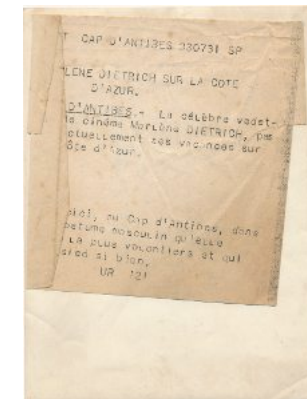 T CAP D'ANTIBES 230731 SP
LENE DIETRICH SUR LA COTE
D'AZUR.
D'ANTIBES.- La célèbre vedet-
le cinéma Marlène DIETRICH, pas
ctuellement ses vacances sur
ôte d'Azur.
ici, au Cap d'Antibes, dans
ostume masculin qu'elle
la plus volontiers et qui
sied si bien.
UR 121